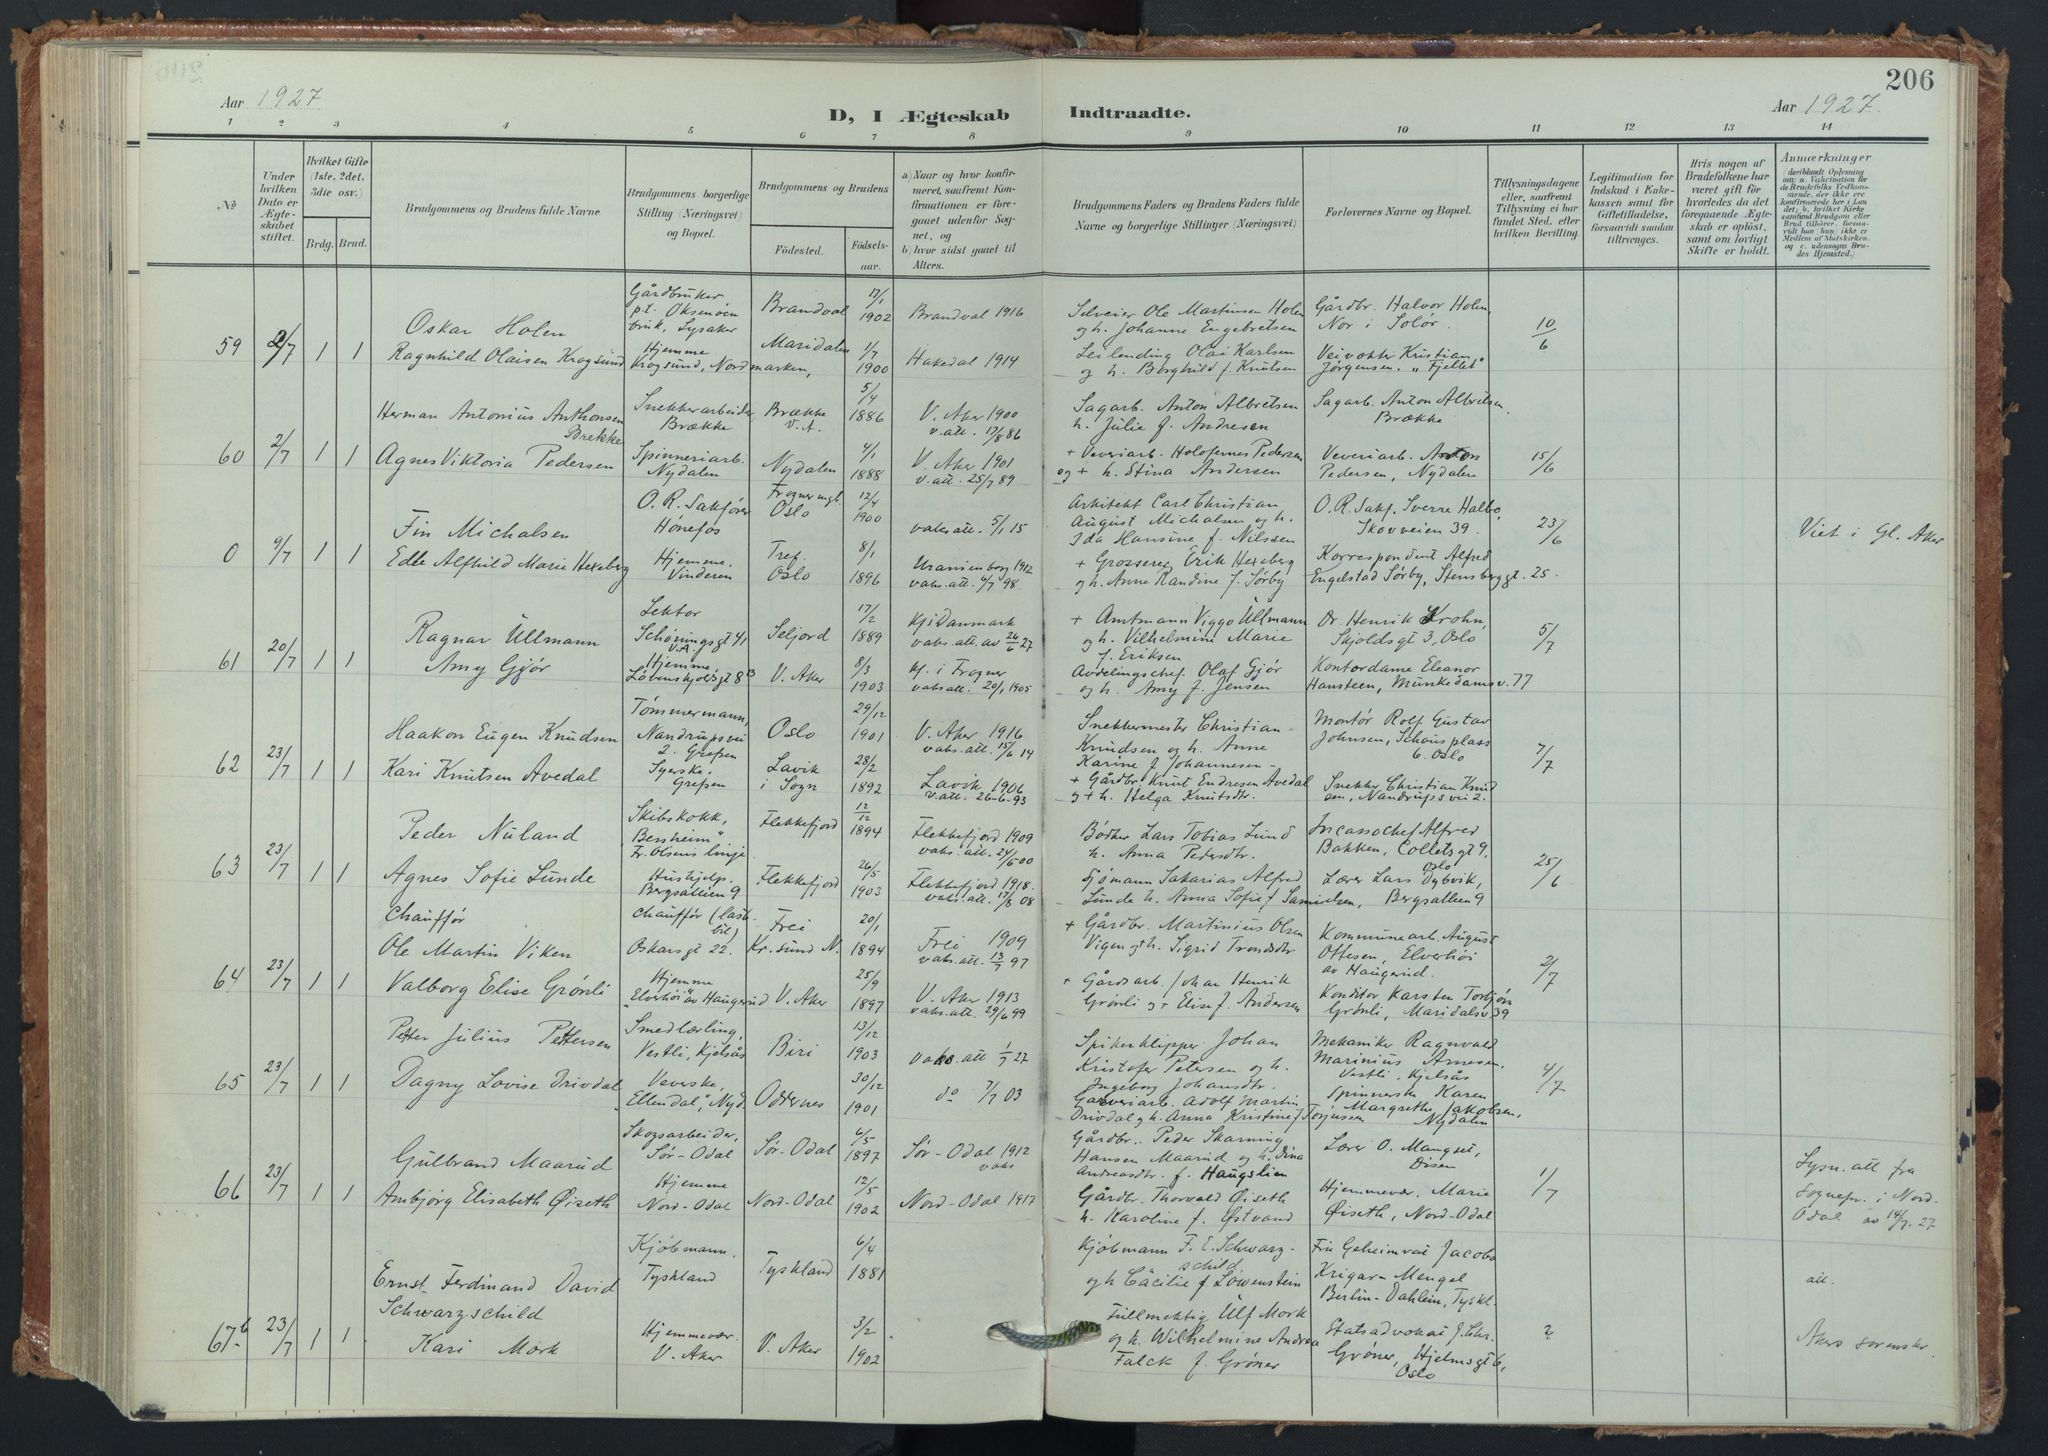 206
Aar 1927
D, I Ægteskab Indtraadte.
Aar 1927.
1 2 3 4 5 6 7 8 9 10 11 12 13 14
No
Under hvilken Dato er Ægteskabet stiftet.
Hvilket Gifte (1ste, 2det, 3die osv.)
Brdg. Brud.
Brudgommens og Brudens fulde Navne.
Brudgommens borgerlige Stilling (Næringsvei) og Bopæl.
Brudgommens og Brudens
Födested. Födselsaar.
a) Naar og hvor konfirmeret, saafremt Konfirmationen er foregaaet udenfor Sognet, og
b) hvor sidst gaaet til Alters.
Brudgommens Faders og Brudens Faders fulde Navne og borgerlige Stillinger (Næringsvei)
Forlovernes Navne og Bopæl.
Tillysningsdagene eller, saafremt Tillysning ei har fundet Sted, efter hvilken Bevilling.
Legitimation for Indskud i Enkekassen samt for Giftetilladelse, forsaavidt saadan tiltrænges.
Hvis nogen af Brudefolkene har været gift før hvorledes da det foregaaende Ægteskab er opløst, samt om lovligt Skifte er holdt.
Anmærkninger
(deriblandt Oplysning om: a. Vakcination for de Brudefolks Vedkommende, der ikke ere konfirmerede her i Landet; b. hvilket Kirkesamfund Brudgom eller Brud tilhører, forsaavidt han (hun) ikke er Medlem af Statskirken, og c. udensogns Brudes Hjemsted.)
59 2/7 1 1
Oskar Holen
Gårdbruker p.t. Oksenøen bruk, Lysaker
Brandval 17/1 1902
Brandval 1916
Selveier Ole Martinsen Holen
og h. Johanne Engebretsen
Gårdbr. Halvor Holen,
Nor i Solør.
10/6
Ragnhild Olaisen Krogsund
Hjemme
Krogsund, Nordmarken,
Maridalen 1/7 1900
Hakedal 1914
Leilending Olai Karlsen
og h. Borghild f. Knutsen
Veivokter Kristian
Jørgensen, "Fjellet"
60 2/7 1 1
Herman Antonius Anthonsen Brekke
Snekkerarbeider Brække
Brække V.A. 5/4 1886
V. Aker 1900
v. att. 17/8 86
Sagarb. Anton Albretsen
h. Julie f. Andresen
Sagarb. Anton Albretsen,
Brække
Agnes Viktoria Pedersen
Spinneriarb. Nydalen
Nydalen 4/1 1888
V. Aker 1901
v. att. 25/7 89
+ Veveriarb. Holofernes Pedersen
og + h. Stina Andersen
Veveriarb. Anton
Pedersen, Nydalen
15/6
0 9/7 1 1
Fin Michalsen
O. R. Sakfører Hønefos
Frogner mgt. Oslo 12/4 1900
vaks. att. 5/1 15
Arkitekt Carl Christian
August Michalsen og h.
Ida Hansine f. Nilssen
O.R. Sakf. Sverre Halbo,
Skovveien 39.
23/6
Viet i Gl. Aker
Edle Alfhild Marie Hexeberg
Hjemme, Vinderen
Tref. Oslo 8/1 1896
Uranienborg 1912
vaks. att. 6/7 98
+ Grosserer Erik Hexeberg
og h. Anne Randine f. Sørby
Korrespondent Alfred
Engelstad Sørby, Stensberggt. 25.
61 20/7 1 1
Ragnar Üllmann
Lektor
Schøningsgt 41 V.A.
Seljord 17/2 1889
Kf i Danmark
vaks. att. av 26/6 27
+ Amtmann Viggo Üllmann
og h. Vilhelmine Marie
f. Eriksen
Dr. Henrik Krohn,
Skjoldsgt 3, Oslo
5/7
Amy Gjør
Hjemme,
Løvenskjoldsgt 8
V. Aker 8/3 1903
kf. i Frogner
vaks att. 20/1 1905
Avdelingschef Olaf Gjør
og h. Amy f. Jensen
Kontordame Eleanor
Hansteen, Munkedamsv. 77
62 23/7 1 1
Haakon Eugen Knudsen
Tømmermann,
Nandrupsvei 2. Grefsen
Oslo 29/12 1901
V. Aker 1916
vaks. att. 15/6 14
Snekkermester Christian
Knudsen og h. Anne
Karine f. Johannesen
Montør Rolf Gustav
Johnsen, Schous plass
6. Oslo
7/7
Kari Knutsen Avedal
Syerske, Grefsen
Lavik i Sogn 28/2 1892
Lavik 1906
v. att. 26-6-93
+ Gårdbr. Knut Endresen Avedal
og + h. Helga Knutsdtr.
Snekker Christian Knudsen, Nandrupsvei 2.
63 23/7 1 1
Peder Nuland
Skibskokk,
"Bessheim"
Fr. Olsens linje
Flekkefjord 12/12 1894
Flekkefjord 1909
vaks. att. 24/5 00
Bødker Lars Tobias Lund
h. Anna Pedersdtr.
Incassochef Alfred
Bakken, Colletsgt 9, Oslo
25/6
Agnes Sofie Lunde
Hushjelp.
Bergsalleen 9
Flekkefjord 26/5 1903
Flekkefjord 1918.
vaks. att. 17/8 08
Sjømann Sakarias Alfred
Lunde h. Anna Sofie f Samielsen,
Lærer Lars Dybvik,
Bergsalleen 9
64 23/7 1 1
Chauffør
Ole Martin Viken
Chauffør (lastbil)
Oskarsgt 22.
Frei Kr. sund N. 20/1 1894
Frei 1909
vaks. att. 13/7 97
+ Gårdbr. Martinius Olsen
Vigen og h. Sigrid Trondsdtr
Kommunearb. August
Ottesen, Elverhøi
av Haugerud.
2/7
Valborg Elise Grønli
Hjemme
"Elverhøi" av Haugerud
V. Aker 25/9 1897
V. Aker 1913
vaks. att. 29/6 99
+ Gårdsarb. Johan Henrik
Grønli og + Elise f. Andersen
Konditor Karsten Torbjørn
Grønli, Maridalsv. 39
65 23/7 1 1
Petter Julius Pettersen
Smedlærling,
Vestli, Kjelsås
Biri 13/12 1903
vaks. att 1/7 27
Spikerklipper Johan
Kristofer Petersen og h.
Ingeborg Johansdtr.
Mekaniker Ragnvald
Marinius Arnesen,
Vestli, Kjelsås
4/7
Dagny Lovise Drivdal
Veverske,
"Ellendal", Nyd.
Oddernes 30/12 1901
do 7/7 03
Garveriarb. Adolf Martin
Drivdal og h. Anna Kristine f Torjussen
Spinnerske Karen
Margrethe Jakobsen,
Nydalen
66 23/7 1 1
Gulbrand Maarud
Skogsarbeider,
Sør-Odal
Sør-Odal 6/5 1897
Sør-Odal 1912
vaks
Gårdbr. Peder Skarning
Hansen Maarud og h. Dina
Andreasdtr. f. Haugslien
Lærer O. Mangset,
Disen
1/7
Lysn. att fra
Sognepr. i Nord-
Odal av 14/7. 27
Ambjørg Elisabeth Øiseth
Hjemme
Nord-Odal
Nord-Odal 12/5 1902
Nord-Odal 1917
Gårdbr. Thorvald Øiseth
h. Karoline f. Østvand
Hjemmevær. Marie
Øiseth, Nord-Odal
67 b 23/7 1 1
Ernst Ferdinand David
Schwarzschild
Kjøbmann.
Tyskland
Tyskland 6/4 1881
Kjøbmann F. E. Schwarzschild
og h Cäcilie f. Löwenstein
Fru Geheimrat Jacoba
Krigar-Mengel
Berlin-Dahlem, Tyskl.
2
att.
Akers sorenskr.
Kari Mork
Hjemmevær.
V. Aker
V. Aker 3/2 1902
Fullmektig Ulf Mork
og h. Wilhelmine Andrea
Falck f. Grøner
Statsadvokat J. Chr.
Grøner, Hjelmsgt 6,
Oslo